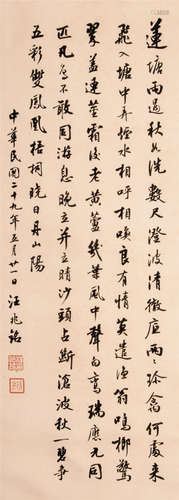 蓮塘雨過秋如洗數尺澄波清徹底兩兩珍禽何處來
飛入塘中弄煙水相呼相喚良有情莫遣漁翁鳴榔驚
翠蓋連莖霜後老黃蘆幾葉風中聲白鸞瑞應元同
匹凡鳥不敢同游息晚立並立晴沙頭占斷滄波秋一碧爭
五彩雙鳳凰梧桐曉日丹山陽
中華民國二十九年五月廿一日汪兆銘